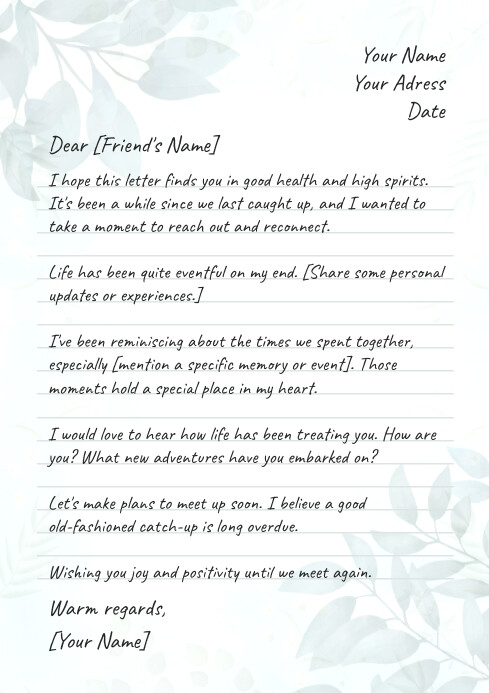 Your Name
Your Adress
Date
Dear [Friend's Name]
I hope this letter finds you in good health and high spirits.
It's been a while since we last caught up, and I wanted to
take a moment to reach out and reconnect.
Life has been quite eventful on my end. [Share some personal
updates or experiences.]
I've been reminiscing about the times we spent together,
especially [mention a specific memory or event]. Those
moments hold a special place in my heart.
I would love to hear how life has been treating you. How are
you? What new adventures have you embarked on?
Let's make plans to meet up soon. I believe a good
old-fashioned catch-up is long overdue.
Wishing you joy and positivity until we meet again.
Warm regards,
[Your Name]